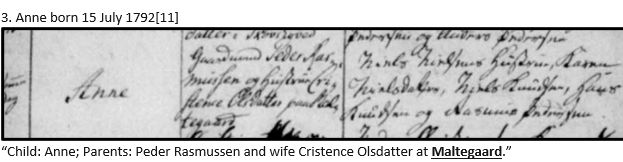 3. Anne born 15 July 1792[11]
datter i Skovsgaard
Gaardmand Peder Ras-
mussen og Hustrue Cri-
stence Olsdatter paa Mal-
tegaard
Anne
Pedersen og Anders Pedersen
Niels Nielsens Hustrue, Karen
Nielsdatter, Niels Knudsen, Hans
Knudsen og Rasmus Pedersen.
“Child: Anne; Parents: Peder Rasmussen and wife Cristence Olsdatter at Maltegaard.”